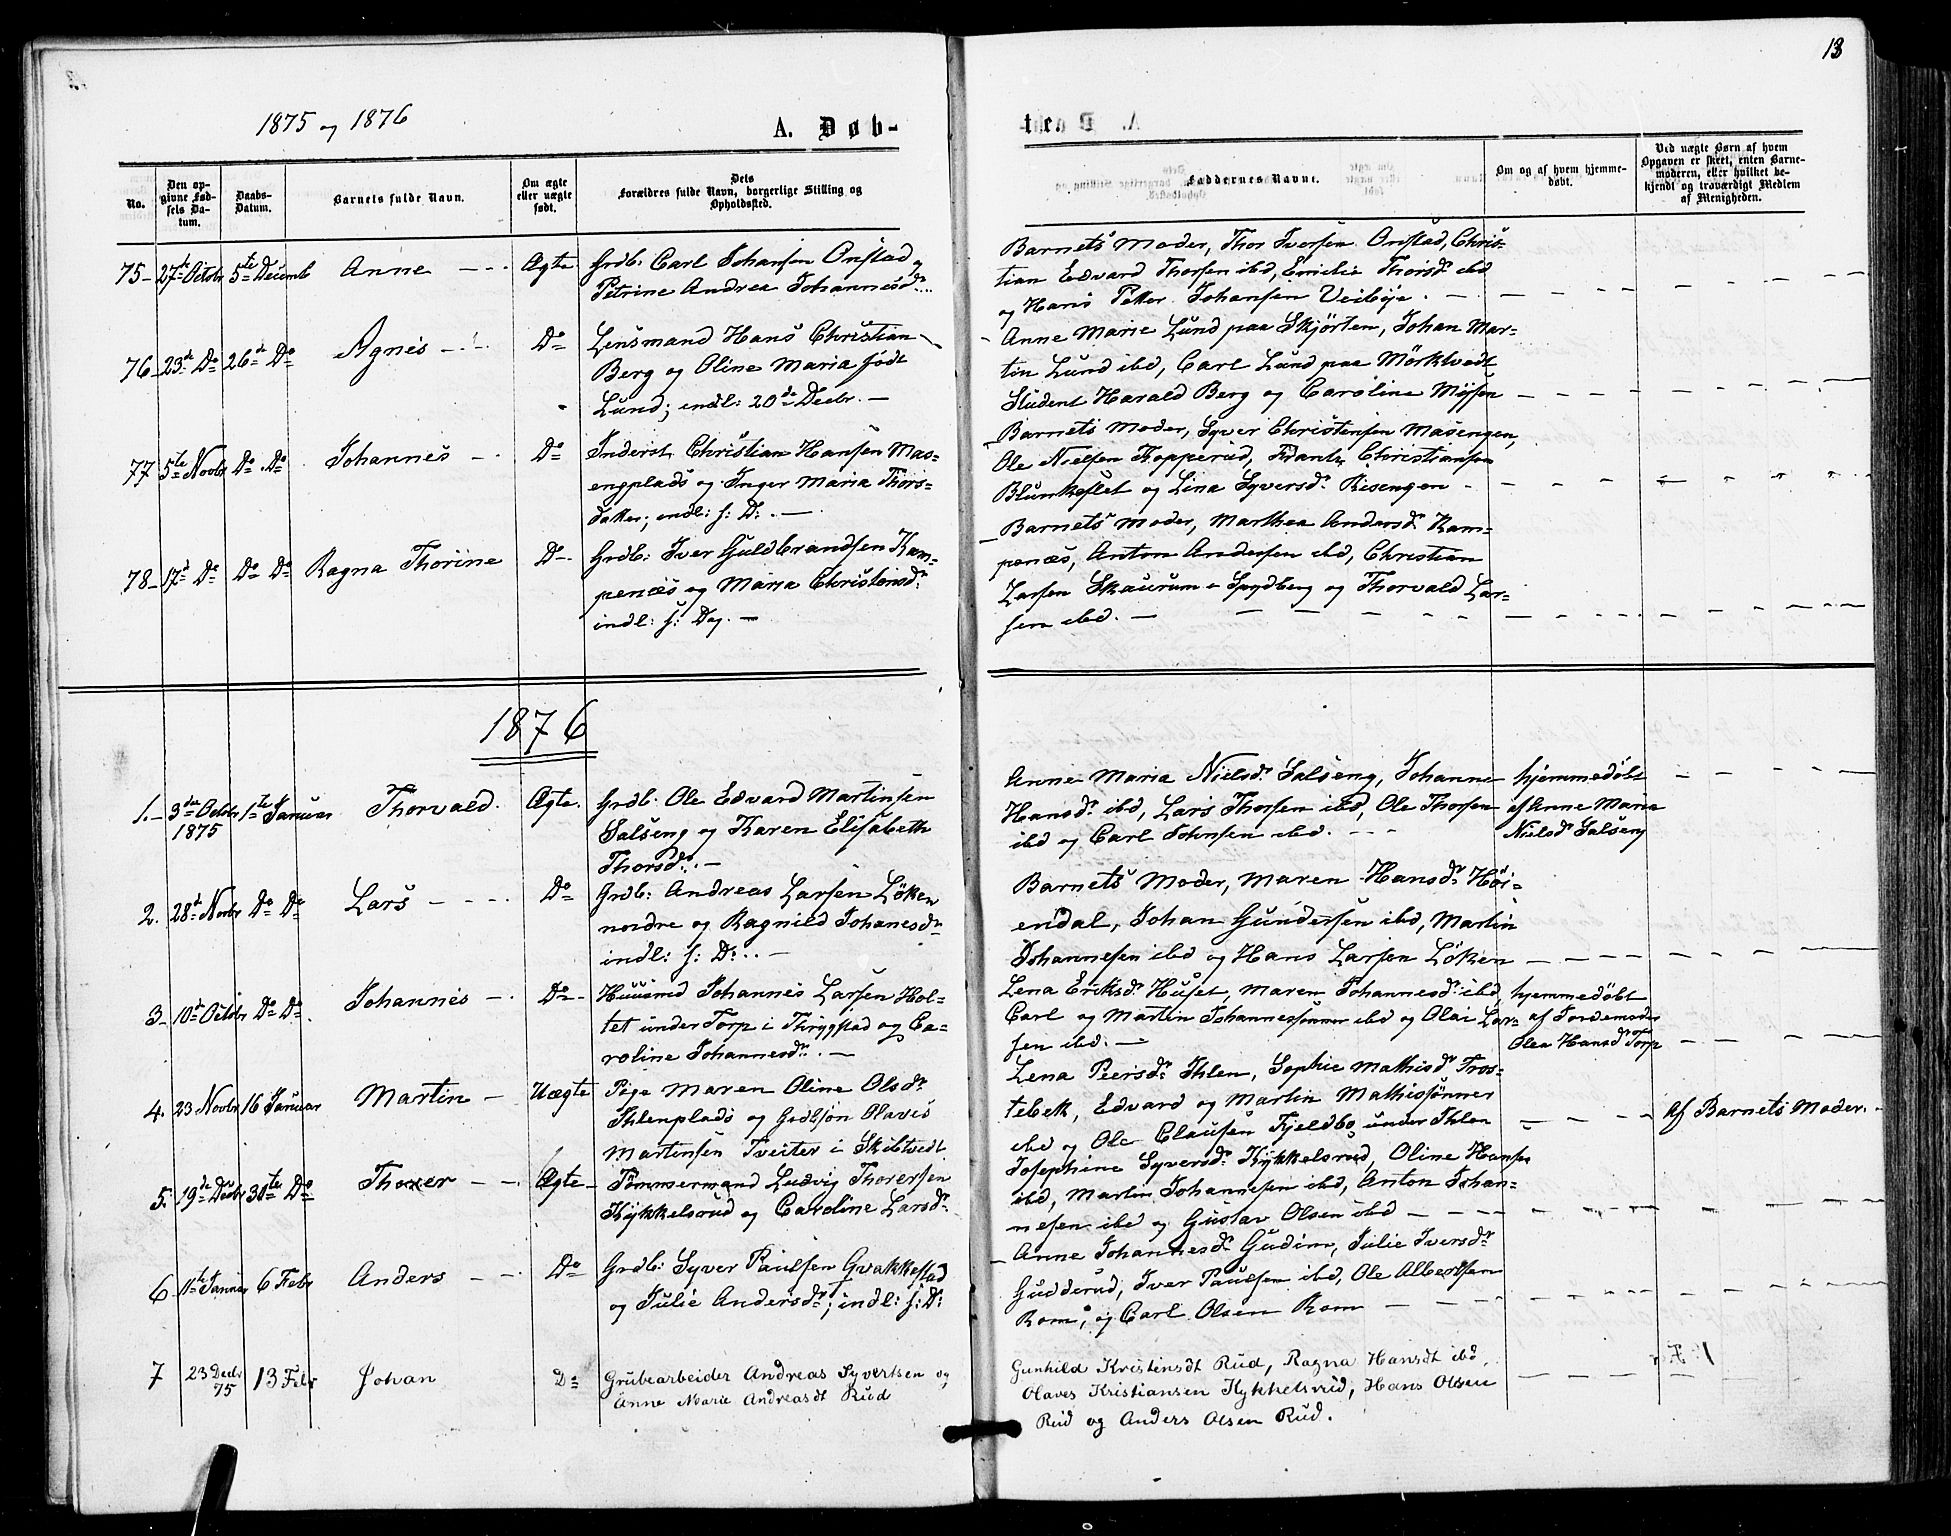 13
1875 og 1876
A. Døb-
te.
No.
Den op-
givne Fød-
sels Da-
tum.
Daabs-
Datum.
Barnets fulde Navn.
Om ægte
eller uægte
født.
Dets
Forældres fulde Navn, borgerlige Stilling og
Opholdssted.
Faddernes Navne.
Om og af hvem hjemme-
døbt.
Ved uægte Børn af hvem
Opgaven er skeet, enten Barne-
moderen, eller hvilket be-
kjendt og troværdigt Medlem
af Menigheden.
75 27de Octobr 5te Decemb Anne Ægte
Grdb: Carl Johansen Onstad og
Petrine Andrea Johannesdr
Barnets Moder, Thor Iversen Onstad, Chris-
tian Edvard Thorsen ibd, Emilie Thorsdr ibd
og Hans Petter Johansen Veibye.
76 23de Do 26de Do Agnes Do
Lensmand Hans Christian
Berg og Oline Maria født
Lund; indl: 20de Decbr.
Anne Marie Lund paa Skjørten, Johan Mar-
tin Lund ibd, Carl Lund paa Mörktvedt
Student Harald Berg og Caroline Mysen
77 5te Novbr Do Do Johannes Do
Inderst Christian Hansen Mas-
engplads og Inger Maria Thors-
datter; indl: s: D:
Barnets Moder, Syver Christensen Masengen,
Ole Nielsen Kopperud, Frantz Christiansen
Blunkeslet og Lina Syversdr Risengen
78 17de Do Do Do Ragna Thorine Do
Grdb: Iver Guldbrandsen Kam-
penæs og Maria Christensdr
indl: s: Dag.
Barnets Moder, Marthea Andersdr Kam-
penæs, Anton Andersen ibd, Christian
Larsen Skaurum Spydberg og Thorvald Lar-
sen ibd.
1876
1. 3die Octbr 1875 1te Januar Thorvald. Ægte.
Grdb: Ole Edvard Martinsen
Salseng og Karen Elisabeth
Thorsdr.
Anne Maria Nielsdr Salseng, Johanne
Hansdr ibd, Lars Thorsen ibd, Ole Thorsen
ibd og Carl Johnsen ibd.
hjemmedøbt
af Anne Maria
Nielsdr Salseng
2. 28de Novbr Do Do Lars Do
Grdb: Andreas Larsen Löken
nordre og Ragnild Johanesdr
indl: s: D:
Barnets Moder, Maren Hansdr Höi-
endal, Johan Gundersen ibd, Martin
Johannesen ibd og Hans Larsen Löken
3 10de Octobr Do Do. Johannes Do
Huusmd Johannes Larsen Hol-
tet under Torp i Thrygstad og Ca-
roline Johannesdr.
Lena Eriksdr Huset, Maren Johannesdr ibd,
Carl og Martin Johannessönner ibd og Olai Lar-
sen ibd.
hjemmedøbt
af Jordemoder
Olea Hansdr Torp
4. 23 Novbr 16 Januar Martin Uægte
Pige Maren Oline Olsdr
Ihlenplads og Grdbsøn Olaves
Martinsen Tveiter i Skibtvedt
Lena Peersdr Ihlen, Sophie Mathisdr Fros-
tebek, Edvard og Martin Mathissönner
ibd og Ole Clausen Fjeldbo under Ihlen
Af Barnets Moder.
5. 19de Decbr 30te Do Thorer Ægte
Tömmermand Ludvig Thoresen
Kykkelsrud og Caroline Larsdr
Josephine Syversdr Kykkelsrud, Oline Hansdr
ibd, Martin Johannesen ibd, Anton Johan-
nesen ibd og Gustav Olsen ibd
6 11te Januar 6 Febr Anders Do
Grdb: Syver Paulsen Gvakkestad
og Julie Andersdr; indl: s: D:
Anne Johannesdr Gudim, Julie Iversdr
Gudderud, Iver Paulsen ibd, Ole Albertsen
Rom, og Carl Olsen Rom
7 23 Decbr 75 13 Febr Johan Do
Grubearbeider Andreas Syvertsen og
Anne Marie Andreasdt Rud
Gunhild Kristinsdt Rud, Ragna Hansdt ibd,
Olaves Kristiansen Kykkelsrud, Hans Olsen
Rud og Anders Olsen Rud.